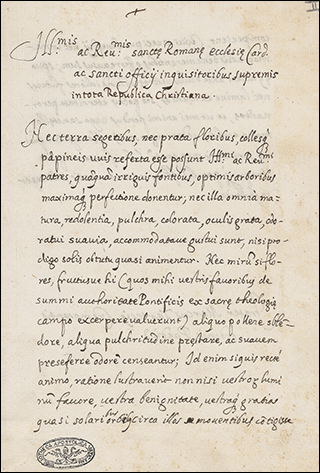 Ill.mis ac Reu.mis sanctę Romanę ecclesię Card.
ac sancti officij inquisitoribus supremis
in tota Republica Christiana.
Nec terra segetibus, nec prata floribus, colles
pampineis uuis referta esse possunt Ill.mi ac Reu.mi
patres, quāquā irriguis fontibus, optimis arboribus
maximaq perfectione donentur, nec illa omnia ma-
tura, redolentia, pulchra, colorata, oculis grata, odo-
ratui suauia, accommodataue gustui sunt, nisi pro-
digo solis obtutu quasi animentur. Nec mirū si flo-
res, fructusue hi (quos mihi uestris fauoribus de
summi authoritate Pontificis ex Sacrę theologię
campo excerpere ualuerunt) aliquo pollene
dore, aliqua pulchritudine pręstare, ac suauem
preseferre odorē censeantur; Id enim siquis recte
animo, ratione lustrauerit non nisi uestroq lumi
nū fauore, uestra benignitate, uestraq gratia
quasi solaribus circa illos mouentibus cōtigisse